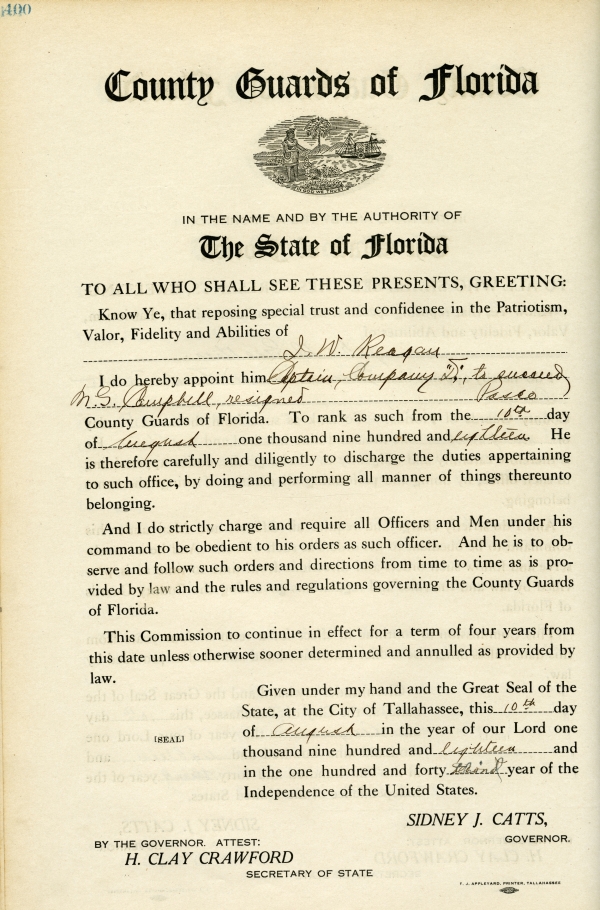 400
County Guards of Florida
IN GOD WE TRUST
IN THE NAME AND BY THE AUTHORITY OF
The State of Florida
TO ALL WHO SHALL SEE THESE PRESENTS, GREETING:
Know Ye, that reposing special trust and confidenee in the Patriotism,
Valor, Fidelity and Abilities of
J. W. Reagan
I do hereby appoint him Captain, Company "D", to succeed
Campbell, resigned Pasco
County Guards of Florida. To rank as such from the 10th day
of August one thousand nine hundred and eighteen He
is therefore carefully and diligently to discharge the duties appertaining
to such office, by doing and performing all manner of things thereunto
belonging.
And I do strictly charge and require all Officers and Men under his
command to be obedient to his orders as such officer. And he is to ob-
serve and follow such orders and directions from time to time as is pro-
vided by law and the rules and regulations governing the County Guards
of Florida.
This Commission to continue in effect for a term of four years from
this date unless otherwise sooner determined and annulled as provided by
law.
Given under my hand and the Great Seal of the
State, at the City of Tallahassee, this 10th day
of August in the year of our Lord one
[SEAL]
thousand nine hundred and eighteen and
in the one hundred and forty third year of the
Independence of the United States.
SIDNEY J. CATTS,
GOVERNOR.
BY THE GOVERNOR. ATTEST:
H. CLAY CRAWFORD
SECRETARY OF STATE
T. J. APPLEYARD, PRINTER, TALLAHASSEE